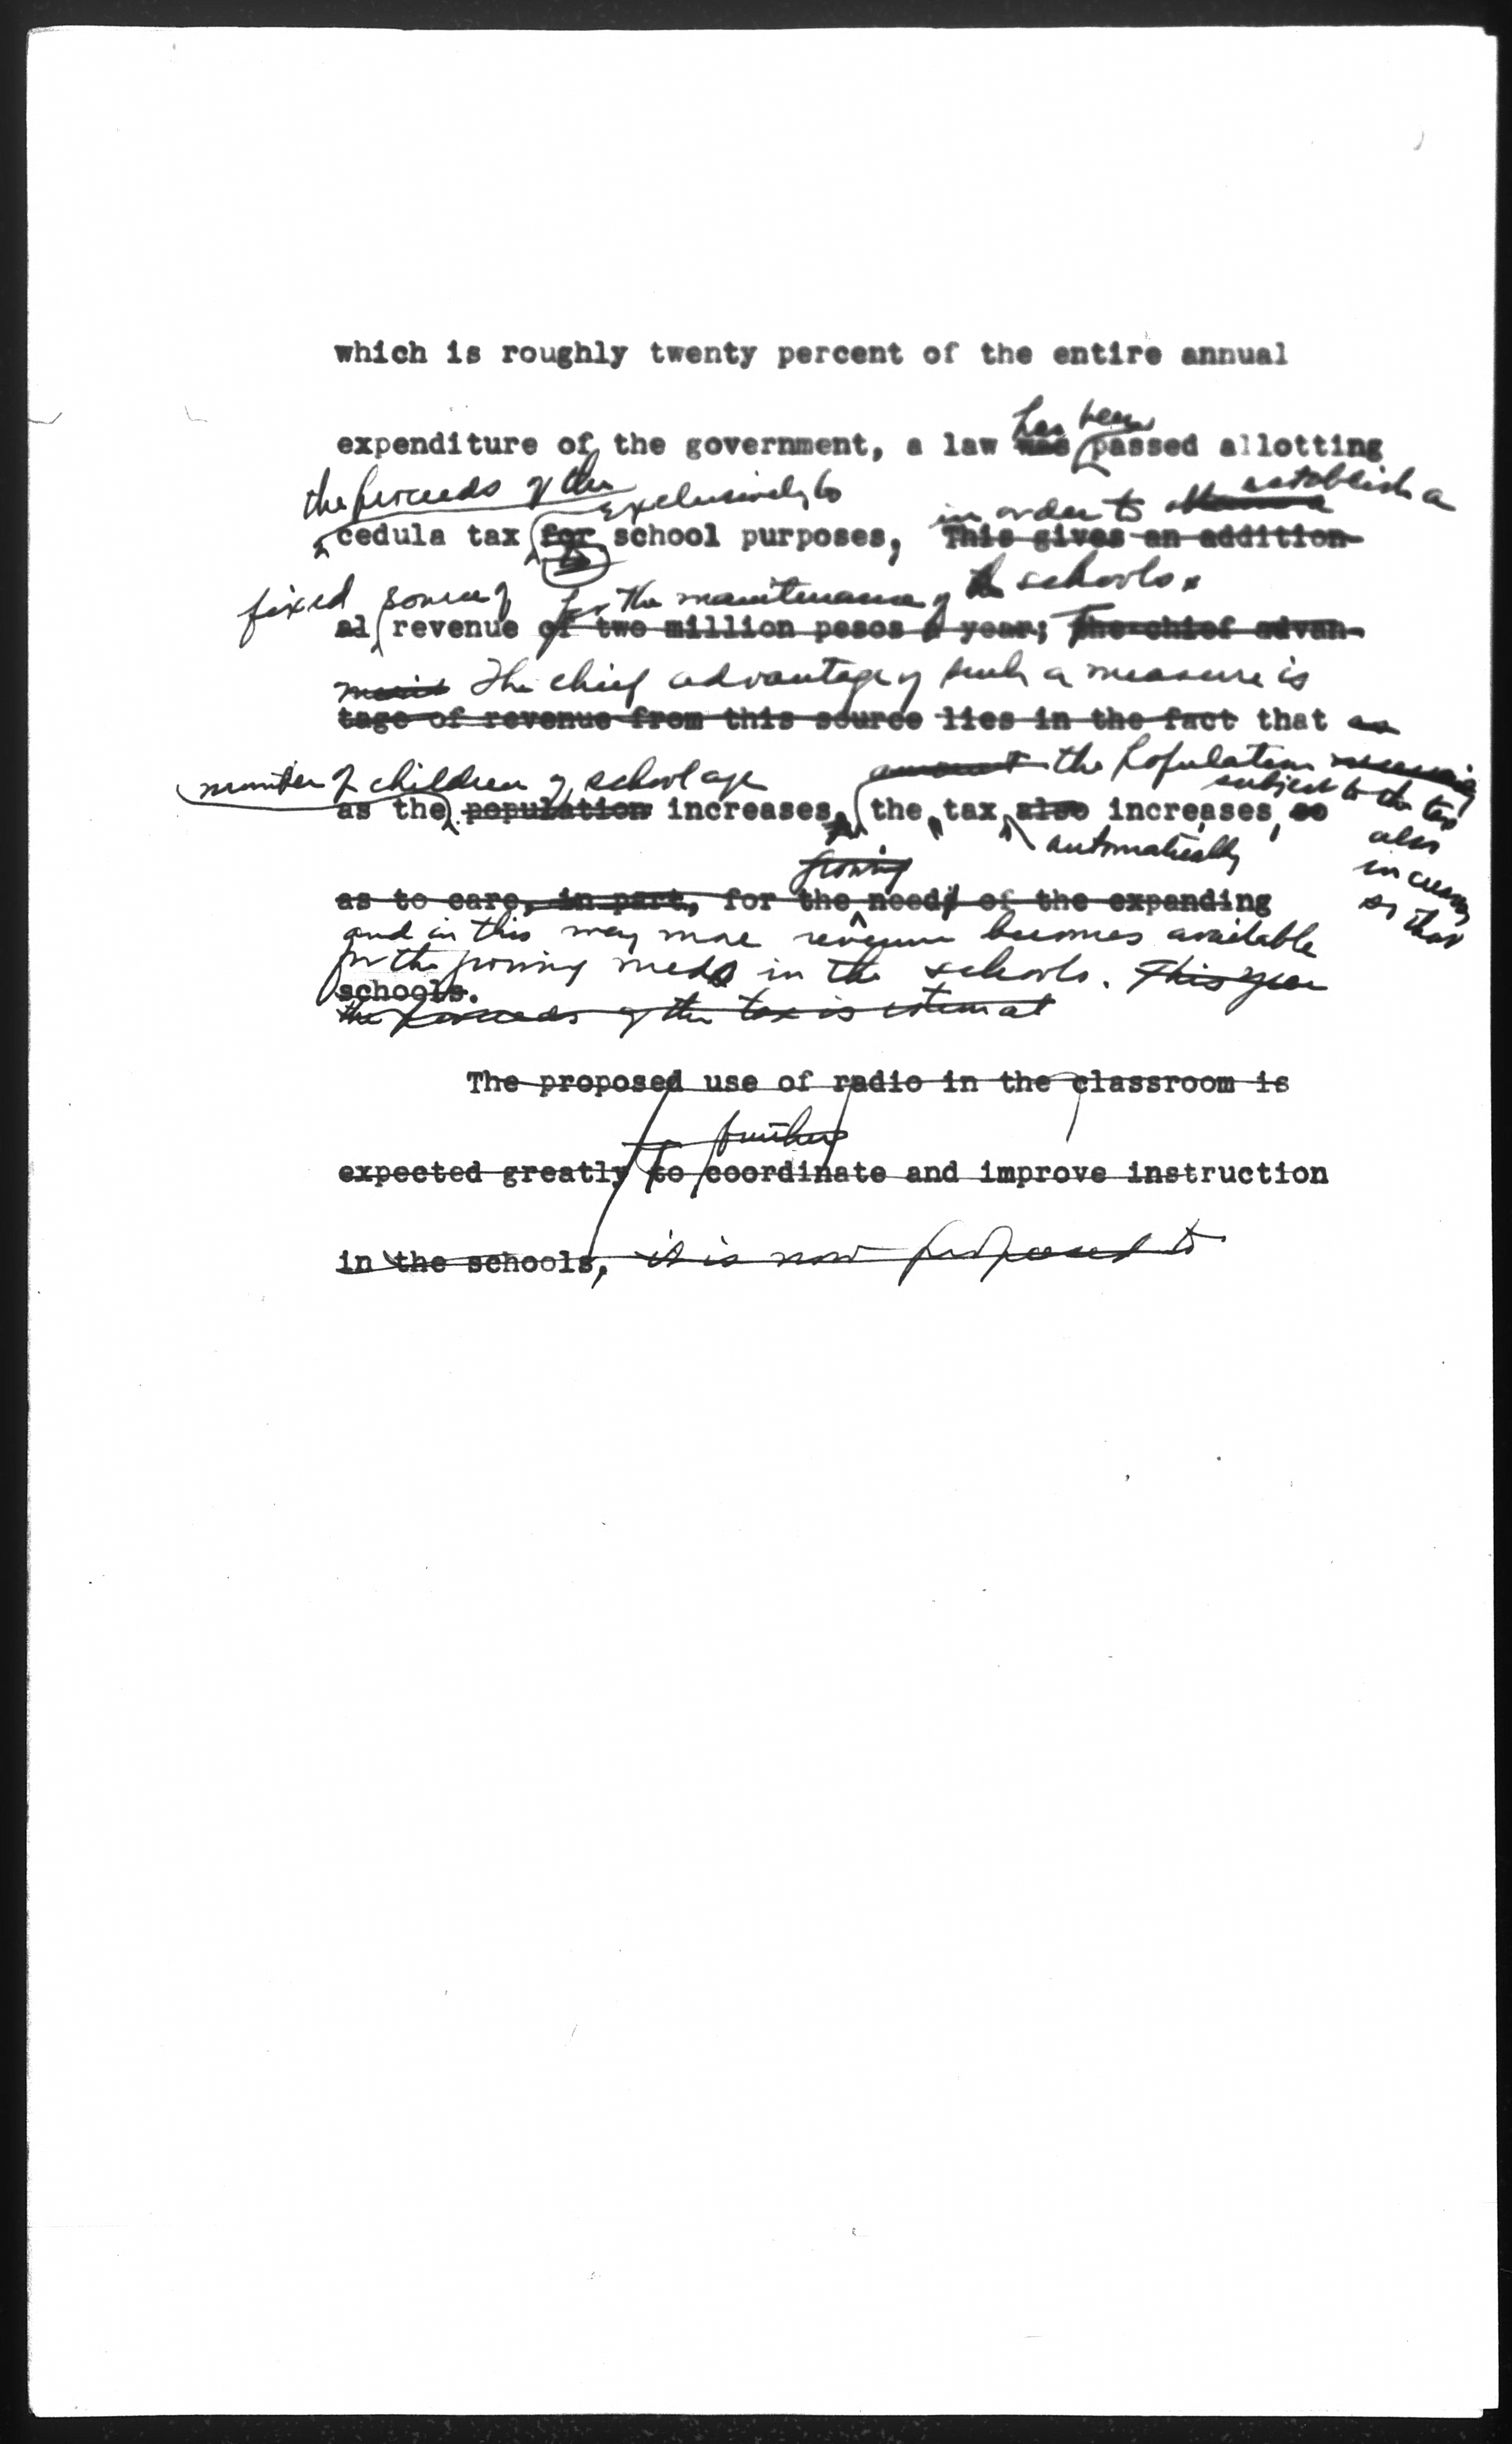 which is roughly twenty percent of the entire annual
has been
expenditure of the government, a law was passed allotting
the proceeds of the exclusively to in order to establish a
cedula tax for school purposes, This gives an addition-
fixed source of for the maintenance of schools.
al revenue of two million pesos a year; The chief advan-
The chief advantage of such a measure is
tage of revenue from this source lies in the fact that as
number of children of school age amount the population
subject to the tax
as the population increases, the tax also increases, so
also
automatically
increases
so that
growing
as to care, in part, for the needs of the expanding
and in this way more revenue becomes available
for the growing needs in the schools. This year
schools.
the proceeds of the tax is estimat
The proposed use of radio in the classroom is
to further
expected greatly to coordinate and improve instruction
in the schools, it is now proposed to